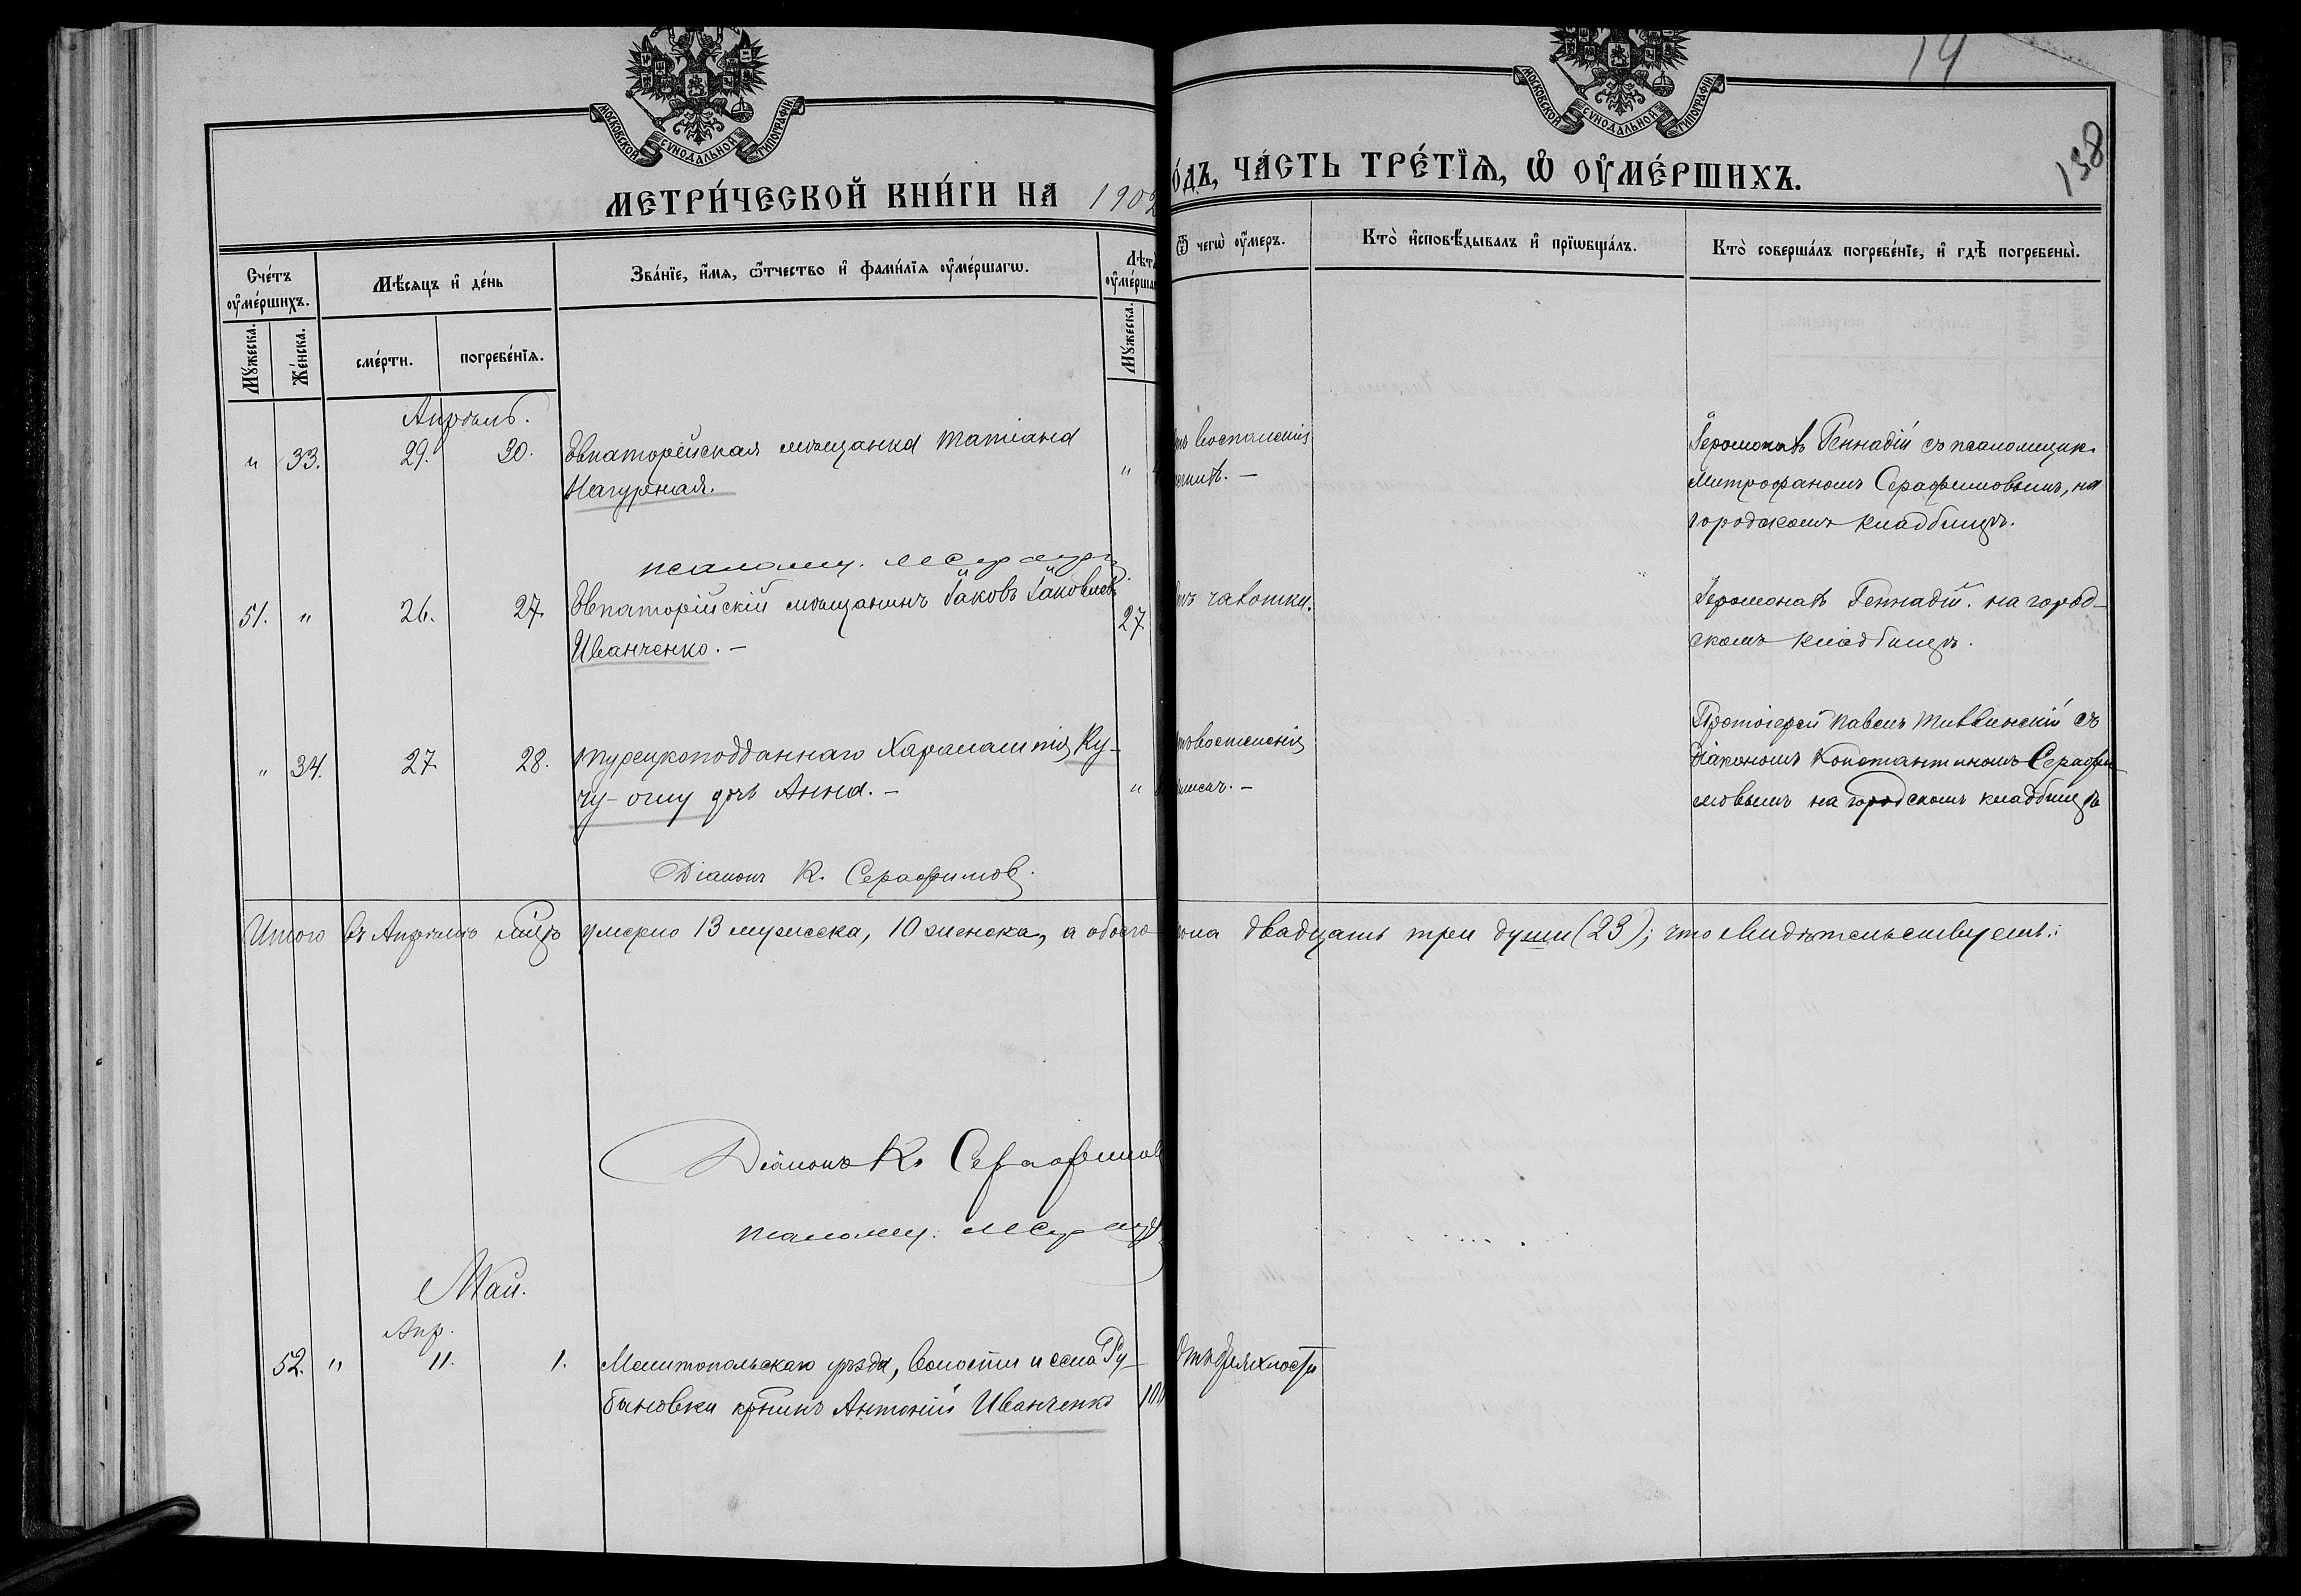 14
138
МОСКОВСКОЙ СѴНОДАЛЬНОЙ ТИПОГРАФІИ
МОСКОВСКОЙ СѴНОДАЛЬНОЙ ТИПОГРАФІИ
МЕТРИ́ЧЕСКОЙ КНИ́ГИ НА 1902
О́ДЪ, ЧА́СТЬ ТРЕ́ТЇѦ, Ѡ҆ ОУ҆МЕ́РШИХЪ.
Сче́тъ оу҆ме́ршихъ.
Мꙋ́жеска.
Же́нска.
Мѣ́сяцъ и҆ де́нь
сме́рти.
погребе́нїѧ.
Зва́нїе, и҆́мѧ, ѻ҆́тчество и҆ фами́лїѧ оу҆ме́ршагѡ.
Лѣт
оу҆ме́рша
Мꙋ́жеска.
Ѿ чегѡ̀ оу҆́меръ.
Кто̀ и҆сповѣ́дывалъ и҆ прїѡбща́лъ.
Кто̀ соверша́лъ погребе́нїе, и҆ гдѣ̀ погребены̀.
Апрѣль.
" 33. 29. 30. Евпаторійская мѣщанка Татіана "
Нагурная.
тъ воспаленія
Іеромонахъ Геннадій съ псаломщик.
Митрофаномъ Серафимовымъ, на
городскомъ кладбищѣ.
псаломщ.
51. " 26. 27. Евпаторійскій мѣщанинъ Іаковъ Іаковлевъ 27
Иванченко. –
тъ чахотки.
Іеромонахъ Геннадій. на город-
скомъ кладбищѣ.
" 34. 27. 28. Турецкоподданнаго Харалампія Ку-
чу-оглу дочь Анна. – "
Протоіерей Павелъ Тивлинскій съ
діакономъ Константиномъ Серафи-
мовымъ на городскомъ кладбищѣ
Діаконъ К. Серафимов.
Итого въ Апрѣлѣ м-цѣ умерло 13 мужеска, 10 женска, а обоего пола двадцать три души (23); что свидѣтельствуемъ:
Діаконъ К. Серафимов
псаломщ.
Май.
Апр.
52. " 11. 1. Мелитопольскаго уѣзда, волости и села Ру-
бановки кр-нинъ Антоній Иванченко 100
Отъ дряхлости